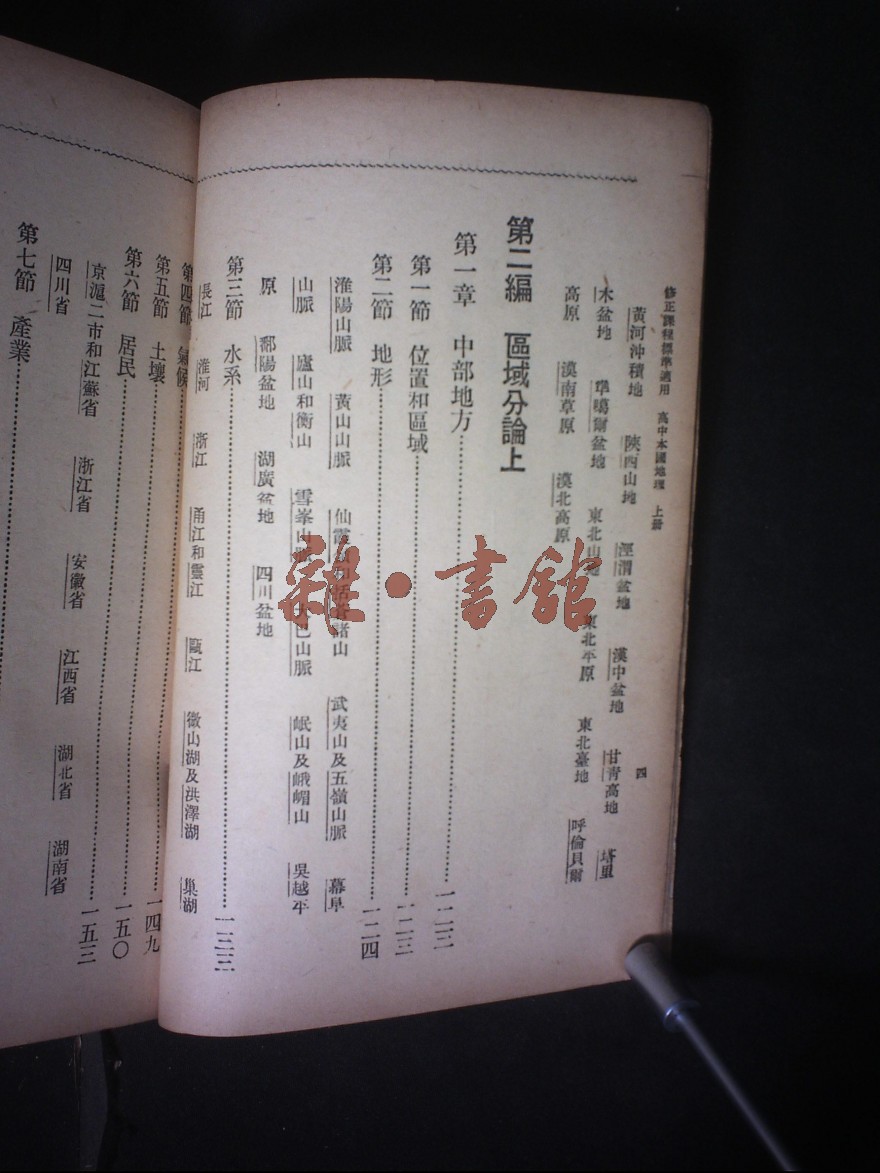 修正課程標準適用 高中本國地理 上册 四
黃河沖積地 陝西山地 涇渭盆地 漢中盆地 甘靑高地 塔里
木盆地 準噶爾盆地 東北山 東北平原 東北臺地 呼倫貝爾
高原 漠南草原 漠北高原
第二編 區域分論上
第一章 中部地方 一二三
第一節 位置和區域 一二三
第二節 地形 一二四
淮陽山脈 黃山山脈 仙霞 括蒼諸山 武夷山及五嶺山脈 幕阜
山脈 廬山和衡山 雪峯山脈 大巴山脈 岷山及峨嵋山 吳越平
原 鄱陽盆地 湖廣盆地 四川盆地
第三節 水系 一三三
長江 淮河 浙江 甬江和靈江 甌江 微山湖及洪澤湖 巢湖
第四節 氣候
第五節 土壤 一四九
第六節 居民 一五〇
京滬二市和江蘇省 浙江省 安徽省 江西省 湖北省 湖南省
四川省
第七節 產業 一五三
雜·書館